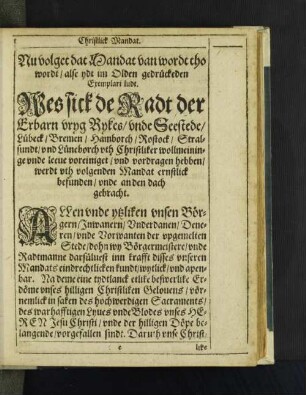 Christlick Mandat.
Nu volget dat Mandat van wordt tho
wordt / alse ydt im Olden gedrückeden
Exemplari ludt.
Wes sick de Radt der
Erbarn vryg Rykes / vnde Seestede /
Lübeck / Bremen / Hamborch / Rostock / Stral-
sundt / vnd Lüneborch vth Christliker wollmenin-
ge vnde leeue voreiniget / vnd vordragen hebben /
werdt vth volgenden Mandat ernstlick
befunden / vnde an den dach
gebracht.
ALLen vnde ytzliken vnsen Bör-
gern / Inwanern / Vnderdanen / Dene-
ren / vnde Vorwanten der vpgemelten
Stede / dohn wy Börgermeistere / vnde
Radtmanne darsüluest inn krafft disses vnseren
Mandats eindrechtlicken kundt / wytlick / vnd apen-
bar. Na deme eine tydtlanck etlike beswerlike Er-
döme vnses hilligen Christliken Gelouens / vör-
nemlick in saken des hochwerdigen Sacraments /
des warhafftigen Lyues vnde Blodes vnses HE-
REN Jesu Christi / vnde der hilligen Döpe be-
langende / vorgefallen sindt. Darüm vnse Christ-
e
licke